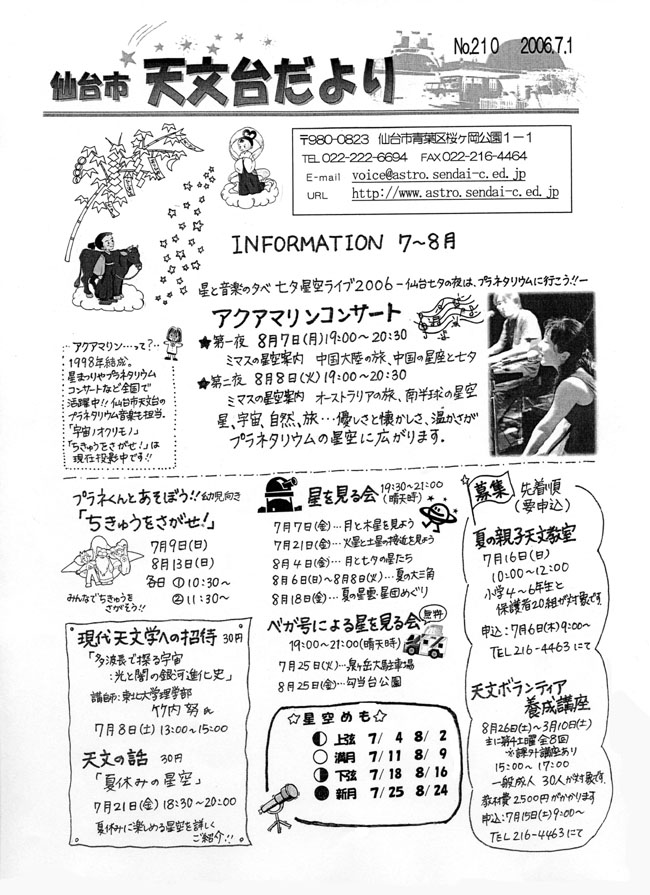 No.210 2006.7.1
仙台市 天文台だより
〒980-0823 仙台市青葉区桜ヶ岡公園1-1
TEL 022-222-6694 FAX 022-216-4464
E-mail voice@astro.sendai-c.ed.jp
URL http://www.astro.sendai-c.ed.jp
INFORMATION 7～8月
星と音楽の夕べ 七夕星空ライブ2006-仙台七夕の夜は、プラネタリウムに行こう!!-
アクアマリンコンサート
★第一夜 8月7日(月)19:00～20:30
ミマスの星空案内 中国大陸の旅、中国の星座と七夕
★第二夜 8月8日(火)19:00～20:30
ミマスの星空案内 オーストラリアの旅、南半球の星空
星、宇宙、自然、旅…優しさと懐かしさ、温かさが
プラネタリウムの星空に広がります。
アクアマリン…って?
1998年結成。
星まつりやプラネタリウム
コンサートなど全国で
活躍中!! 仙台市天文台の
プラネタリウム音楽も担当。
「宇宙ノオクリモノ」
「ちきゅうをさがせ!」は
現在投影中です!!
プラネくんとあそぼう!! 幼児向き
「ちきゅうをさがせ!」
7月9日(日)
8月13日(日)
各日 ①10:30～
②11:30～
みんなでちきゅうを
さがそう!!
星を見る会 19:30～21:00
(晴天時)
7月7日(金)…月と木星を見よう
7月21日(金)…火星と土星の接近を見よう
8月4日(金)…月と七夕の星たち
8月6日(日)～8月8日(火)…夏の大三角
8月18日(金)…夏の星雲・星団めぐり
ベガ号による星を見る会 無料
19:00～21:00(晴天時)
7月25日(火)…泉ヶ岳大駐車場
8月25日(金)…勾当台公園
募集 先着順
(要申込)
夏の親子天文教室
7月16日(日)
10:00～12:00
小学4～6年生と
保護者20組が対象です。
申込:7月6日(木)9:00～
TEL 216-4463にて
天文ボランティア
養成講座
8月26日(土)～3月10日(土)
主に第4土曜 全8回
※課外講座あり
15:00～17:00
一般成人 30人が対象です。
教材費2500円がかかります
申込:7月15日(土)9:00～
TEL 216-4463にて
現代天文学への招待 30円
「多波長で探る宇宙
:光と闇の銀河進化史」
講師:東北大学理学部
竹内 努氏
7月8日(土)13:00～15:00
天文の話 30円
「夏休みの星空」
7月21日(金)18:30～20:00
夏休みに楽しめる星空を詳しく
ご紹介!!
☆星空めも☆
上弦 7/4 8/2
満月 7/11 8/9
下弦 7/18 8/16
新月 7/25 8/24